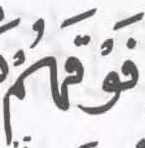 فَوْقَهُمْ